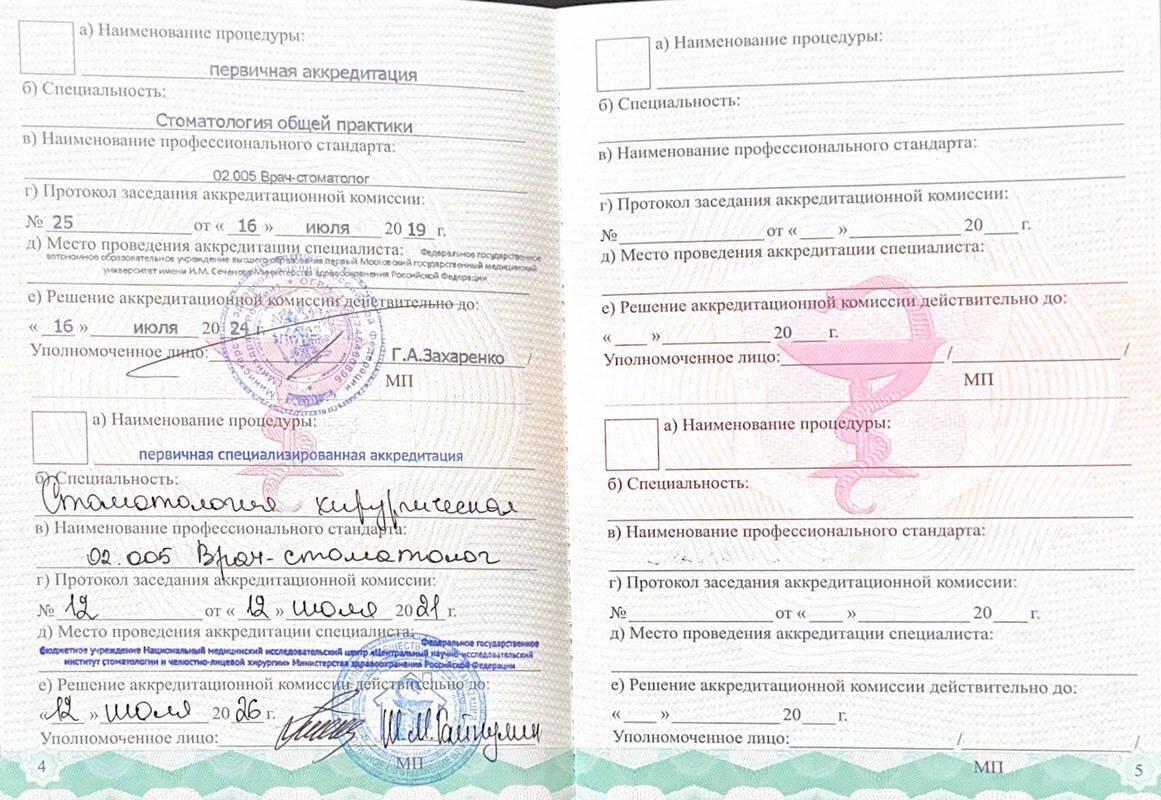 а) Наименование процедуры:
первичная аккредитация
б) Специальность:
Стоматология общей практики
в) Наименование профессионального стандарта:
02.005 Врач-стоматолог
г) Протокол заседания аккредитационной комиссии:
№ 25 от « 16 » июля 20 19 г.
д) Место проведения аккредитации специалиста: Федеральное государственное
автономное образовательное учреждение высшего образования Первый Московский государственный медицинский
университет имени И.М. Сеченова Министерства здравоохранения Российской Федерации
е) Решение аккредитационной комиссии действительно до:
« 16 » июля 20 24 г.
Уполномоченное лицо: Г.А.Захаренко /
МП
а) Наименование процедуры:
первичная специализированная аккредитация
б) Специальность:
Стоматология хирургическая
в) Наименование профессионального стандарта:
02.005 Врач-стоматолог
г) Протокол заседания аккредитационной комиссии:
№ 12 от « 12 » июля 20 21 г.
д) Место проведения аккредитации специалиста: Федеральное государственное
бюджетное учреждение Национальный медицинский исследовательский центр «Центральный научно-исследовательский
институт стоматологии и челюстно-лицевой хирургии» Министерства здравоохранения Российской Федерации
е) Решение аккредитационной комиссии действительно до:
« 12 » июля 20 26 г.
Уполномоченное лицо:
МП
4
а) Наименование процедуры:
б) Специальность:
в) Наименование профессионального стандарта:
г) Протокол заседания аккредитационной комиссии:
№ от « » 20 г.
д) Место проведения аккредитации специалиста:
е) Решение аккредитационной комиссии действительно до:
« » 20 г.
Уполномоченное лицо: / /
МП
а) Наименование процедуры:
б) Специальность:
в) Наименование профессионального стандарта:
г) Протокол заседания аккредитационной комиссии:
№ от « » 20 г.
д) Место проведения аккредитации специалиста:
е) Решение аккредитационной комиссии действительно до:
« » 20 г.
Уполномоченное лицо: / /
МП
5